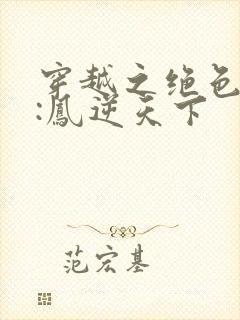 穿越之绝色
:鳳逆天下
范宏基